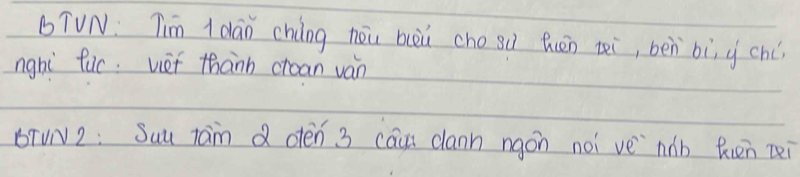 BTVN: Tìm 1 dẫn chứng tiêu biểu cho sự kiên trì, bền bỉ, ý chí,
nghị lực. viết thành đoạn văn
BTVN2: Sưu tầm 2 đến 3 câu danh ngôn nói về tính kiên trì